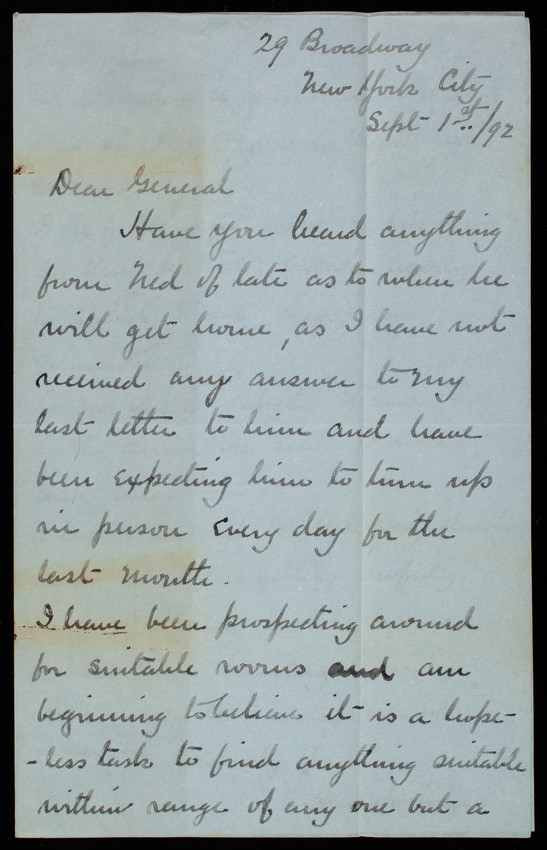 29 Broadway
New York City
Sept 1st/92
Dear General
Have you heard anything
from Ned of late as to when he
will get home, as I have not
received any answer to my
last letter to him and have
been expecting him to turn up
in person every day for the
last month.
I have been prospecting around
for suitable rooms and am
beginning to believe it is a hope-
-less task to find anything suitable
within range of any one but a